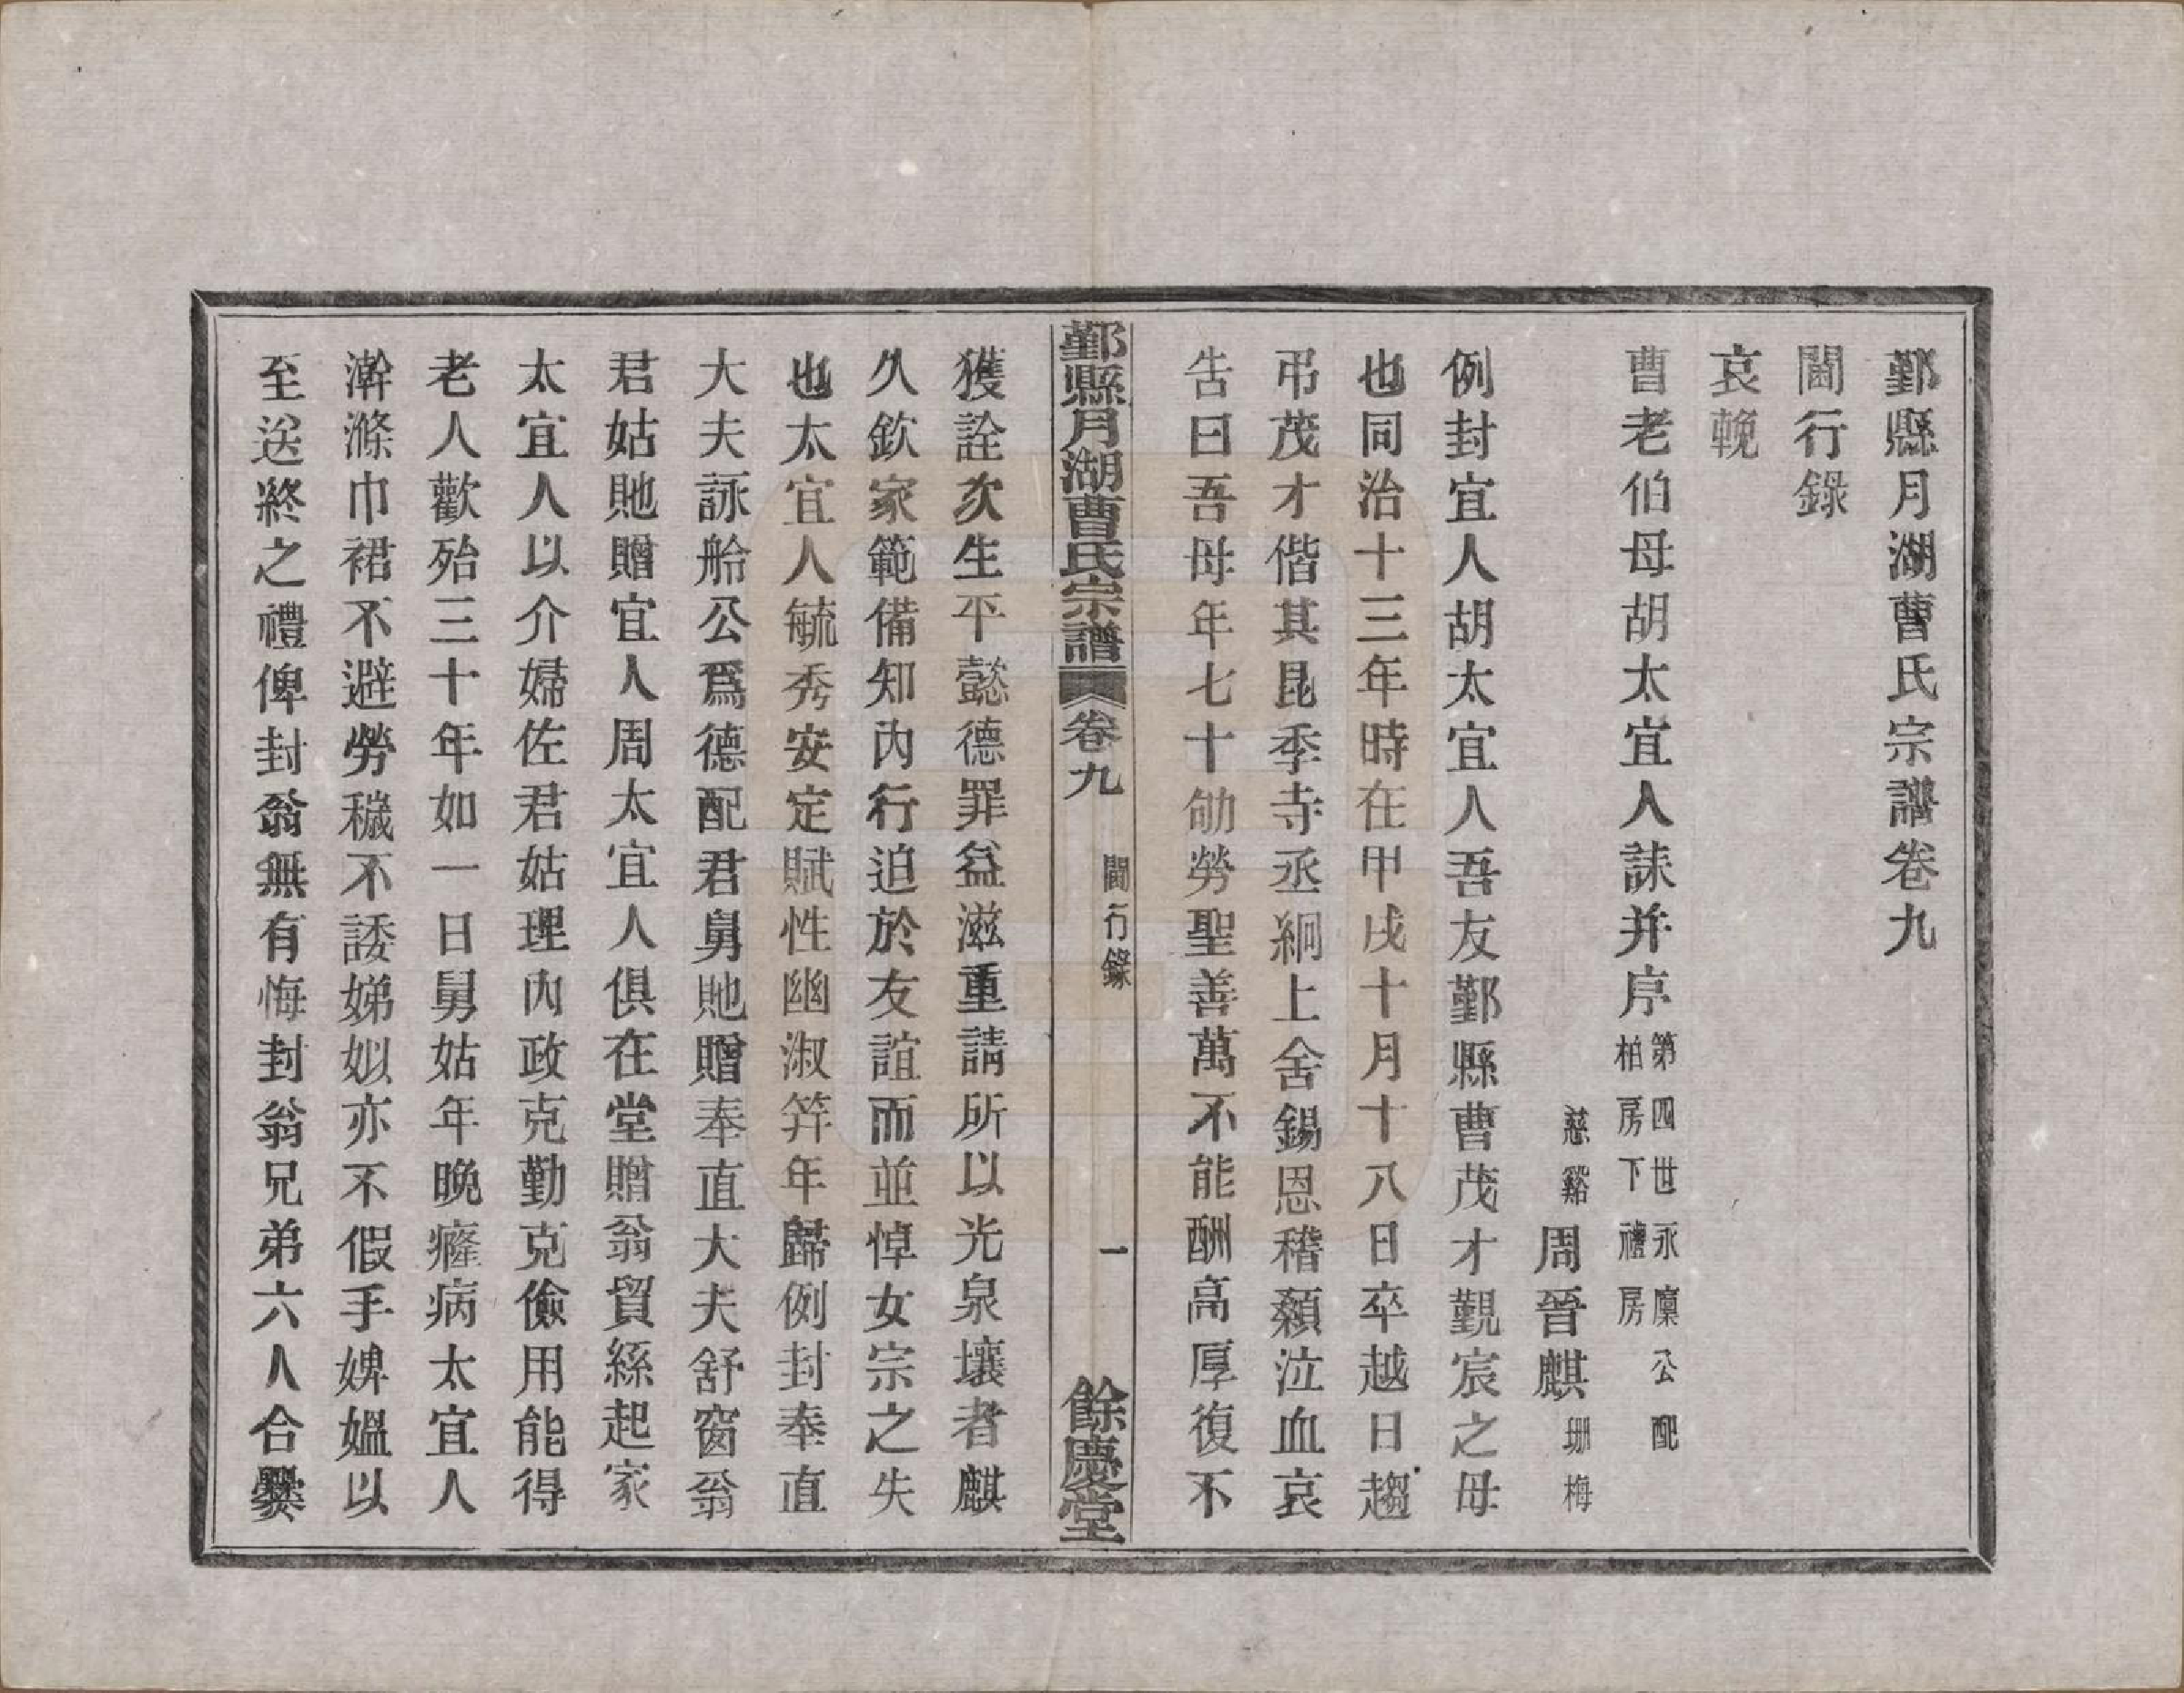 鄞縣月湖曹氏宗譜卷九
閫行錄
哀輓
曹老伯母胡太宜人誄并序第四世永廩公配柏房下禮房
慈谿周晉麒珊梅
例封宜人胡太宜人吾友鄞縣曹茂才觐宸之母
也同治十三年時在甲戌十月十八日卒越日趨
弔茂才偕其昆季寺丞絅上舍錫恩稽顙泣血哀
告曰吾母年七十劬勞聖善萬不能酬高厚復不
鄞縣月湖曹氏宗譜 卷九 閫行錄 一 餘慶堂
獲詮次生平懿德罪益滋重請所以光泉壤者麒
久欽家範備知內行迫於友誼而並悼女宗之失
也太宜人毓秀安定賦性幽淑笄年歸例封奉直
大夫詠舲公爲德配君舅貤贈奉直大夫舒窗翁
君姑貤贈宜人周太宜人俱在堂贈翁貿絲起家
太宜人以介婦佐君姑理內政克勤克儉用能得
老人歡殆三十年如一日舅姑年晚癃病太宜人
澣滌巾裙不避勞穢不諉娣姒亦不假手婢媼以
至送終之禮俾封翁無有悔封翁兄弟六人合爨